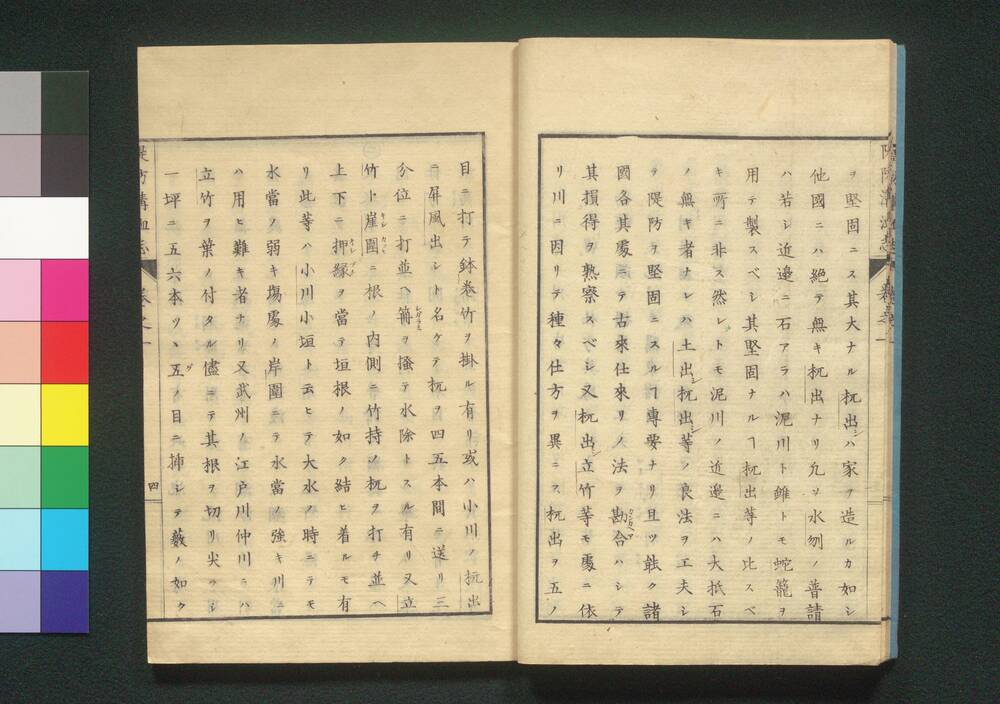 ヲ堅固ニス其大ナル杭出シハ家ヲ造ルカ如シ
他國ニハ絶テ無キ杭出ナリ凡ソ水刎ノ普請
ハ若シ近邉ニ石アラハ泥川ト雖トモ蛇籠ヲ
用テ製スベシ其堅固ナルヿ杭出等ノ比スベ
キ所ニ非ス然レトモ泥川ノ近邉ニハ大抵石
ノ無キ者ナレハ土出シ杭出シ等ノ良法ヲ工夫シ
テ隄防ヲ堅固ニスルヿ專要ナリ且ツ能ク諸
國各其處ニテ古來仕來リノ法ヲ勘合ハシテ
其損得ヲ熟察スベシ又杭出シ立竹等モ處ニ依
リ川ニ因リテ種々仕方ヲ異ニス杭出ヲ五ノ
目ニ打テ鉢巻竹ヲ掛ル有リ或ハ小川ノ杭出
ニ屏風出シト名ケテ杭ヲ四五本間ニ送リ三
分位ニ打並ヘ簀ヲ搔テ水除トスル有リ又立
竹ト崖圍ニ根ノ内側ニ竹持ノ杭ヲ打チ並ヘ
上下ニ押縁ヲ當テ垣根ノ如ク結ヒ着ルモ有
リ此等ハ小川小垣ト云ヒテ大水ノ時ニテモ
水當ノ弱キ塲處ノ岸圍ニテ水當ノ強キ川ニ
ハ用ヒ難キ者ナリ又武州ノ江戸川仲川ニハ
立竹ヲ葉ノ付タル儘ニテ其根ヲ切リ尖ラシ
一坪ニ五六本ツヽ五ノ目ニ挿シテ藪ノ如ク
四